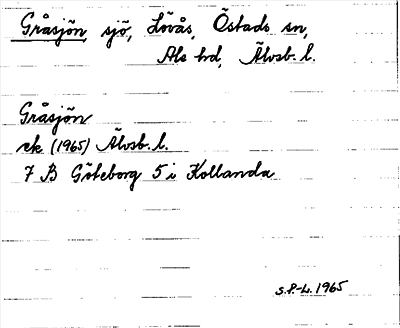 Gråsjön, sjö, Lövås, Östads sn,
Ale hd, Älvsb. l.
Gråsjön
ek. (1965) Älvsb. l.
7 B Göteborg 5 i Kollanda
S.P.-L. 1965